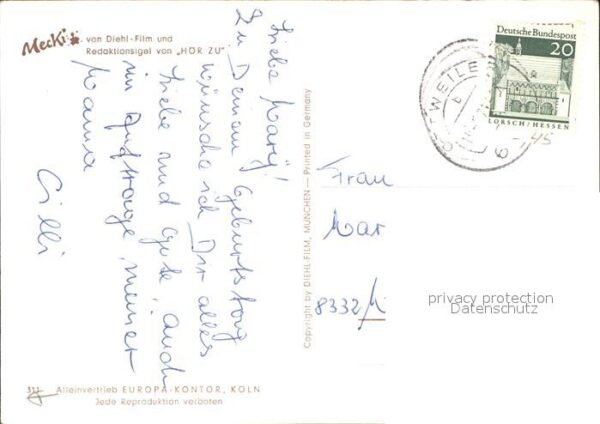 Mecki
von Diehl-Film und
Redaktionsigel von „HÖR ZU"
Liebe Mary!
Zu Deinem Geburtstag
wünsche ich Dir alles
Liebe und Gute, auch
im Auftrage meiner
Mama
Cilli
311
Alleinvertrieb EUROPA-KONTOR, KÖLN
Jede Reproduktion verboten
Copyright by DIEHL-FILM, MÜNCHEN – Printed in Germany
Deutsche Bundespost
20
LORSCH/HESSEN
WEILE
-,45
Frau
Mar
8332 M
privacy protection
Datenschutz